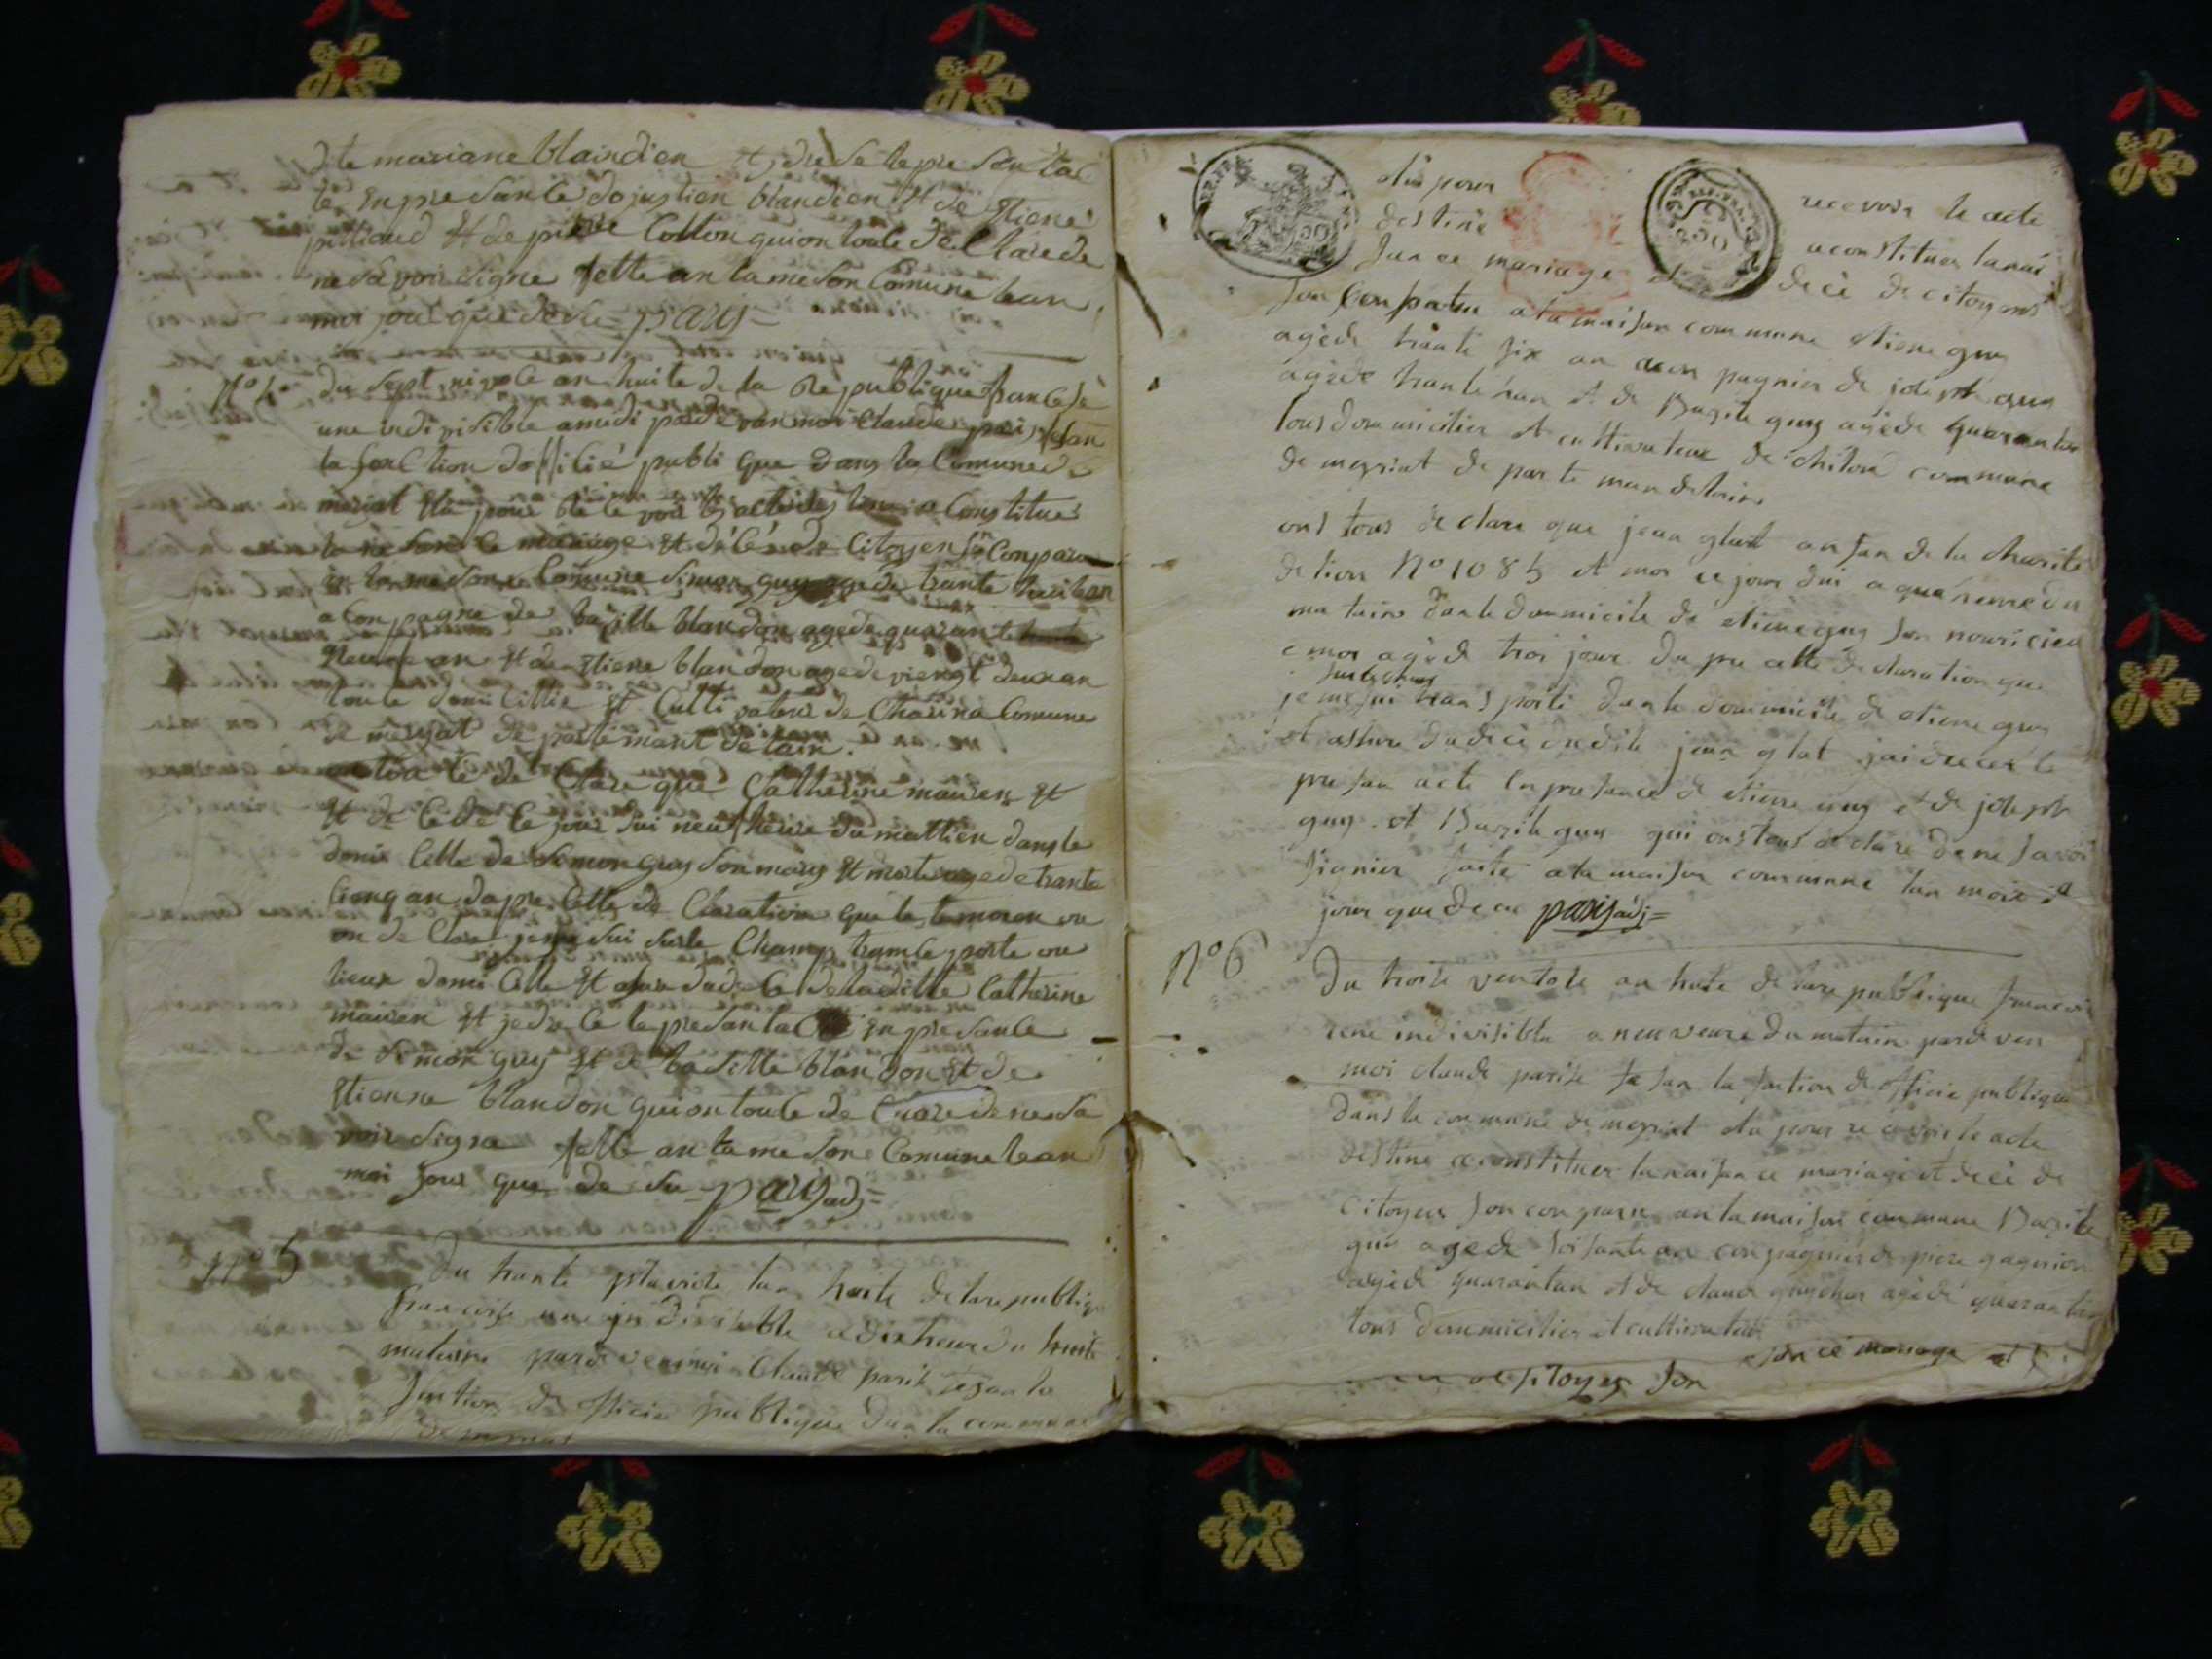 dte mariane blaindion et jedresse le presen tac
te En presante do justien blandion Et de Etiene
pittioud Et de pierre Collon qui on toute de Clare de
ne Sa voir Signe fette an la meson Comune lean
moi jour que desu = paris =
N° 4 du sept nivose an huite de la Republique francese
une indivisible a midi parde van moi Claude paris fesan
la fonction dossicié publi que dans la Comune de
meriat Elu pour Re ce voir les actes destine a Constitue
la ne sance mariage Et déce de Citoyen son Conparu
an la mesone Comune Simon guy agede trante huit an
a Conpagne de basille blandon agede quarante
neuf an Et de Etiene blandon agede viengt deux an
toute domicillie Et Culti vateur de Charina Comune
de meriat de partemant de lain
on toute de Clare que Catherine mauren Et
Et de Cede Ce jour dui neuf heure du mattien dans le
domi Cille de Simon guy Son mary Et morte agede trante
Cienq an dapre Cette de Claration que le temoien on
on de Clare je me sui sur le Champ trance porte ou
lieux domi Cille Et asure dude Ce de la ditte Catherine
mauren Et je dresse le presan tacte En presance
de Simon guy Et de basille blan don Et de
Etienne blandon qui on toute de Clare de ne sa
voir Signe fette an la me sone Comune lean
moi jour que de su paris adj =
N° 5 Du trante pluviose lan huite de lare publique
francoise une jn divisible a dix heure du
matains parde van moi Claude paris fesan la
fontion de officie publique dan la commune
de meriat
elu pour recevoir le acte
destine a constituer lanai
san ce mariage et decè de citoyens
son Conparu a la maison commune etiene guy
agede trante six an acon pagnier de joseph guy
agede trante hun et de Bazile guy agede quarantan
tous dommicilier et cultivateur de chiloud commune
de meyriat de par te man de lain
ons tous de clare que jean glat an fan de la charite
de lion N° 1085 et mor ce jour dui a quatreure du
matains dan le dommicile de etiene guy son nouricier
e mor agede troi jour du pre cette declaration que
sur le champ
je me sui trans porte dan le dommicile de etiene guy
et assure du decè du dit jean glat jai drecer le
presan acte en presance de etiene guy et de joseph
guy et Bazile guy qui ons tous declaré de ne savoi
signier faite a la maison commune lan mois et
jour que de cu paris adj =
N° 6 Du troise ventose an huite de lare publique francoi
i une indivisible a neuveure du matain parde van
moi claude parise fe san la fontion de officie publique
dans la commune de meyriat elu pour re ce voir le acte
destine a constituer lanaisan ce mariage et decè de
Citoyen son conparu an la maison commune Bazile
guy agede soisante an conpagnier de piere gagnion
agede quarantan et de claude guychar agede quarantan
tous dommicilier et cultivateur
san ce mariage et
de sitoyen son